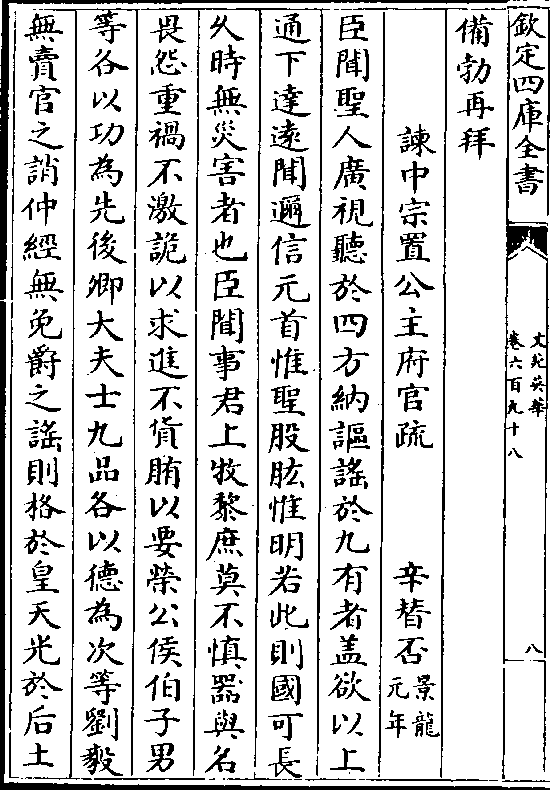 欽定四庫全書
文苑英華
卷六百九十八
八
備勃再拜
諫中宗置公主府官疏
辛替否
景龍
元年
臣聞聖人廣視聽於四方納謳謠於九有者蓋欲以上
通下達遠聞邇信元首惟聖股肱惟明若此則國可長
久時無災害者也臣聞事君上牧黎庶莫不慎器與名
畏怨重禍不激詭以求進不貨賄以要榮公侯伯子男
等各以功為先後卿大夫士九品各以德為次等劉毅
無賣官之誚仲經無免爵之謠則格於皇天光於后土